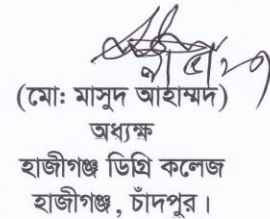 (মো: মাসুদ আহাম্মদ)
অধ্যক্ষ
হাজীগঞ্জ ডিগ্রি কলেজ
হাজীগঞ্জ, চাঁদপুর।